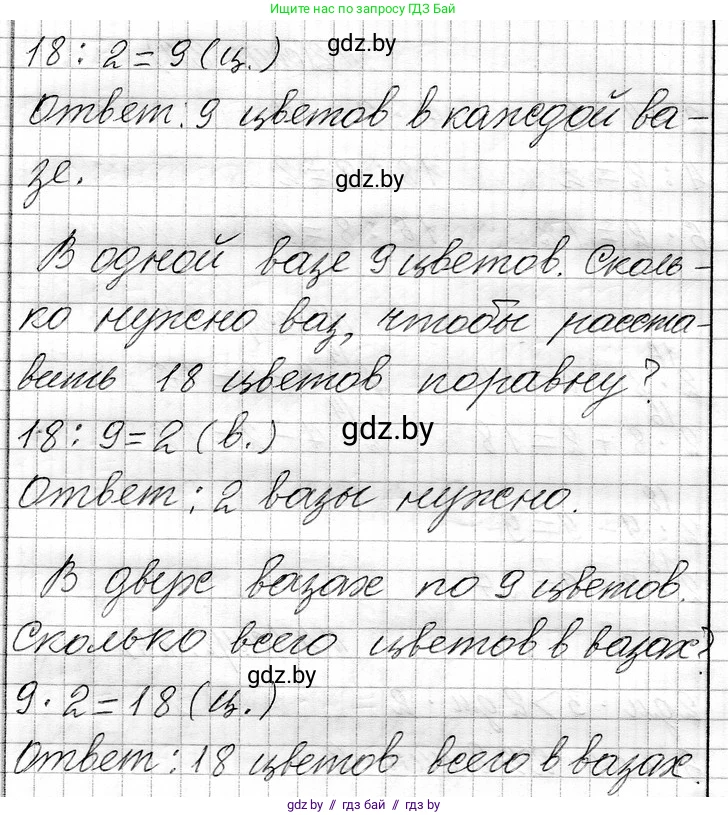 Ищите нас по запросу ГДЗ Бай
18 : 2 = 9 (ц.)
gdz.by
Ответ: 9 цветов в каждой ва-
зе.
gdz.by
В одной вазе 9 цветов. Сколь-
ко нужно ваз, чтобы расста-
вить 18 цветов поравну?
18 : 9 = 2 (в.)
gdz.by
Ответ: 2 вазы нужно.
В двух вазах по 9 цветов.
Сколько всего цветов в вазах?
gdz.by
9 · 2 = 18 (ц.)
Ответ: 18 цветов всего в вазах.
gdz.by // гдз бай // гдз by